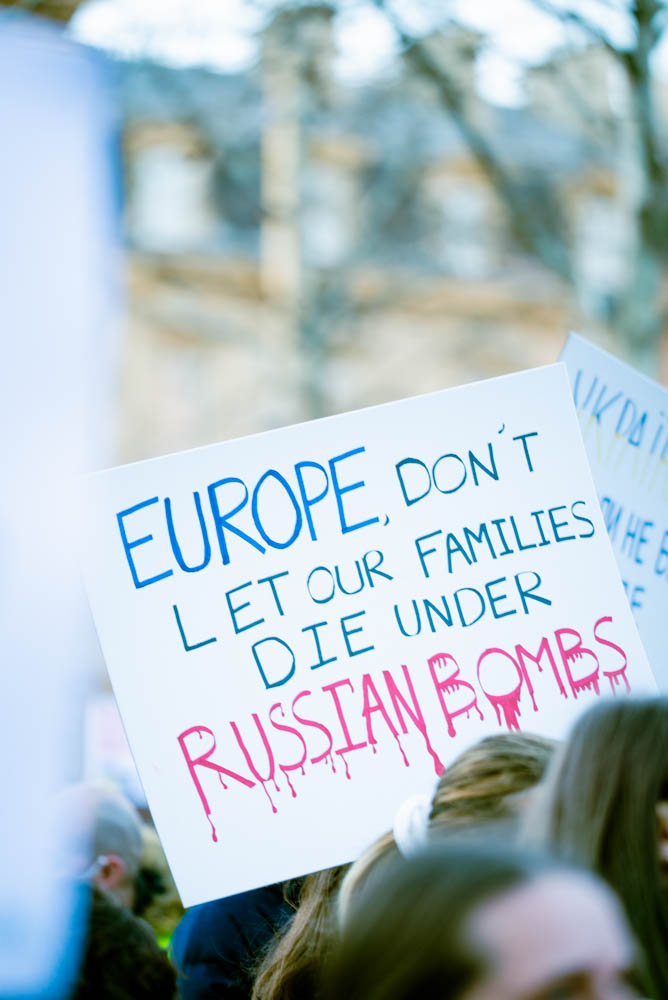 EUROPE, DON'T
LET OUR FAMILIES
DIE UNDER
RUSSIAN BOMBS
НЕ